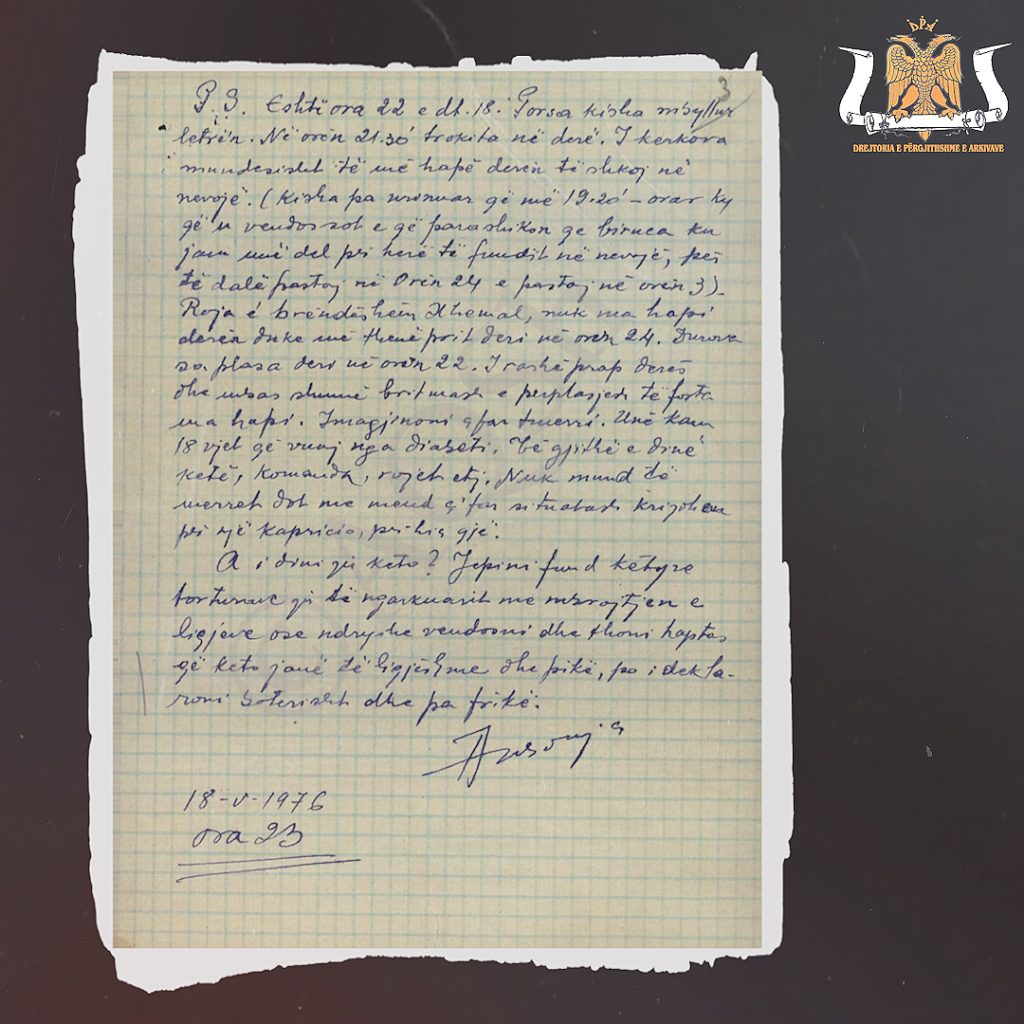 DPA
DREJTORIA E PËRGJITHSHME E ARKIVAVE
3
P.S. Eshtë ora 22 e dt. 18. Porsa kisha mbyllur
letrën. Në orën 21.30 trokita në derë. I kerkova
mundesisht të më hapë deren të shkoj në
nevojë. (Kisha pa urinuar që më 19.20 – orar ky
që u vendos sot e që parashikon qe biruca ku
jam unë del për herë të fundit në nevojë, për
të dalë pastaj në Orën 24 e pastaj në orën 3).
Roja é brëndëshëm Xhemal, nuk ma hapi
derën duke më thenë prit deri në orën 24. Durova
sa plasa deri në orën 22. I rashë prap derës
dhe mbas shumë britmash e përplasjesh të forta
ma hapi. Imagjinoni çfar tmerri. Unë kam
18 vjet që vuaj nga diabeti. Të gjithë e dinë
ketë, komanda, rojet etj. Nuk mund të
merret dot me mend ç'far situatash krijohen
për një kapricio, për hiç gjë.
A i dini ju keto? Jepini fund këtyre
torturave ju të ngarkuarit me mbrojtjen e
ligjeve ose ndryshe vendosni dhe thoni haptas
që keto janë të ligjëshme dhe pikë, po i dekla-
roni botërisht dhe pa frikë.
18-V-1976
ora 23